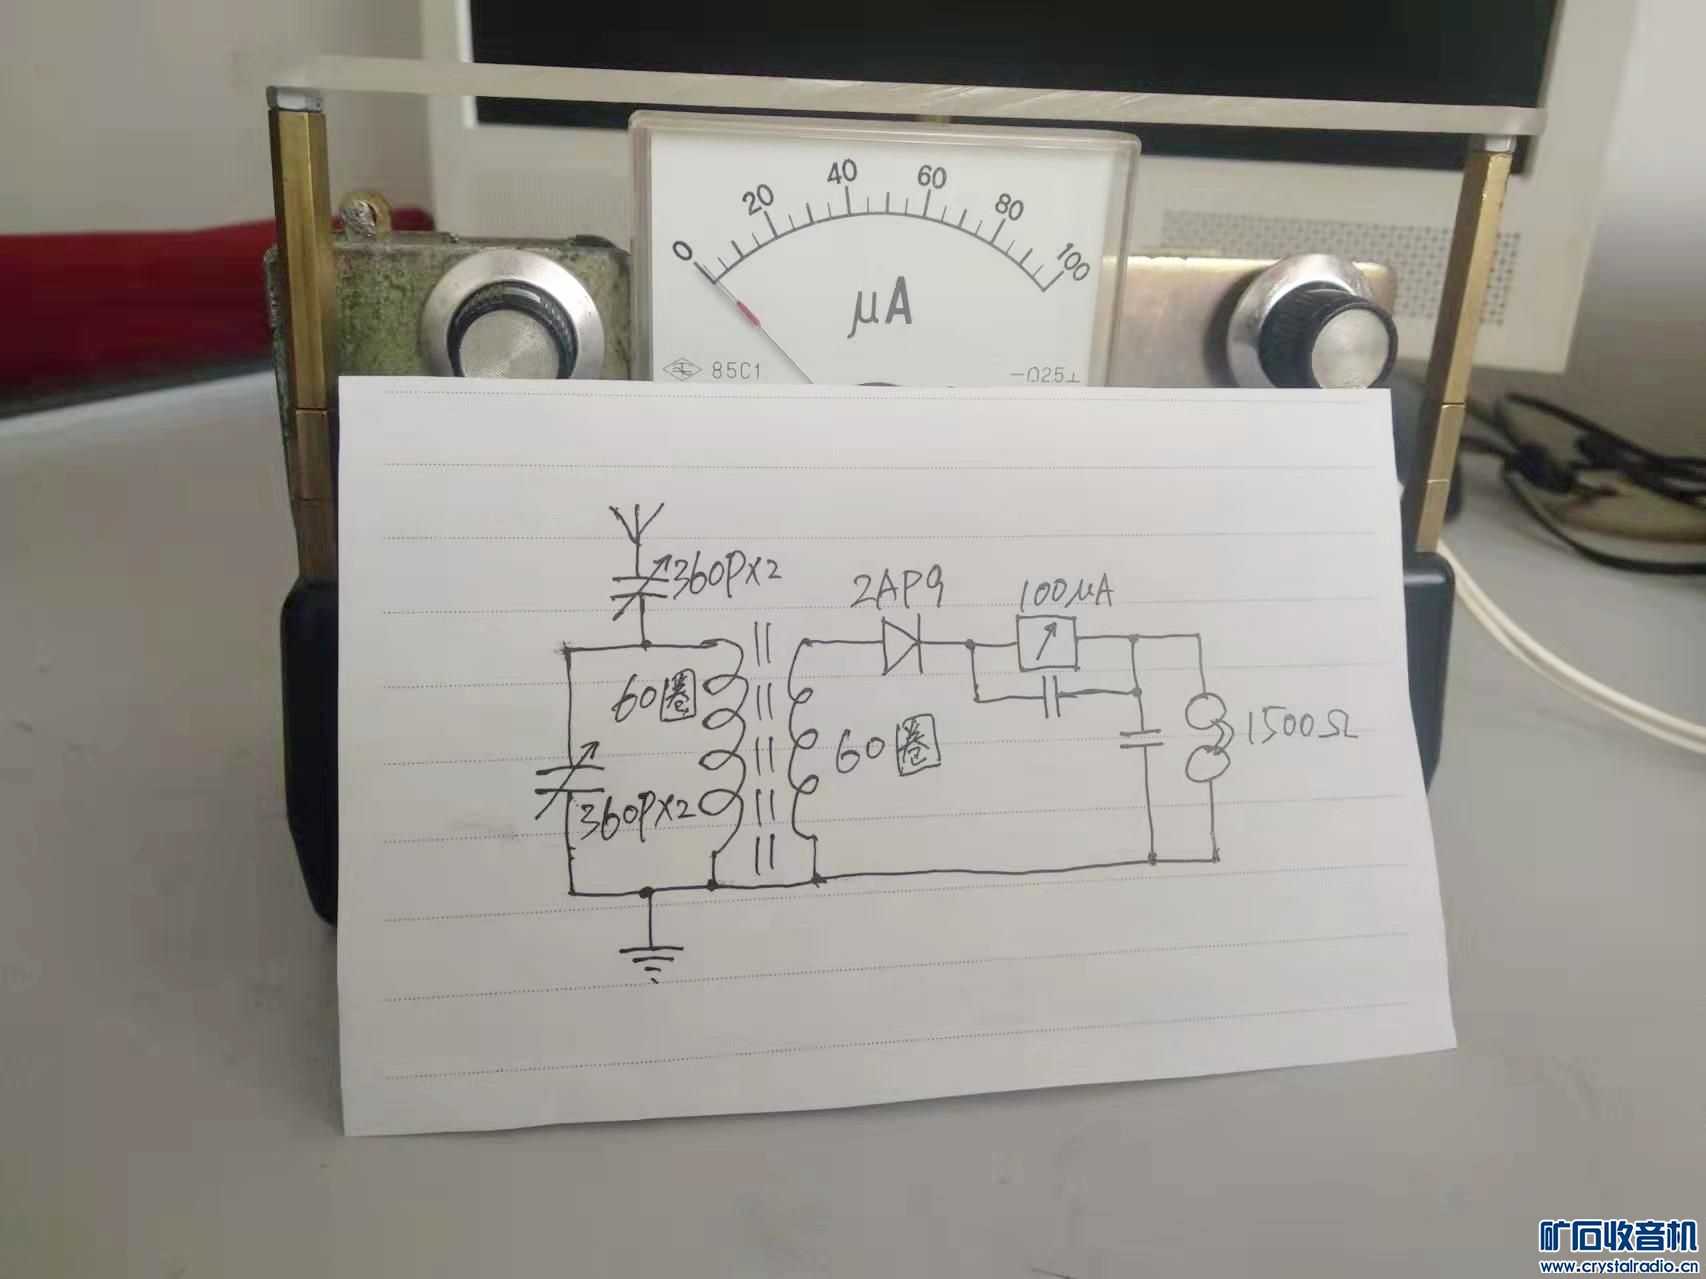 0 20 40 60 80 100
μA
85C1
360P×2
2AP9
100μA
60圈
60圈
1500Ω
360P×2
矿石收音机
www.crystalradio.cn